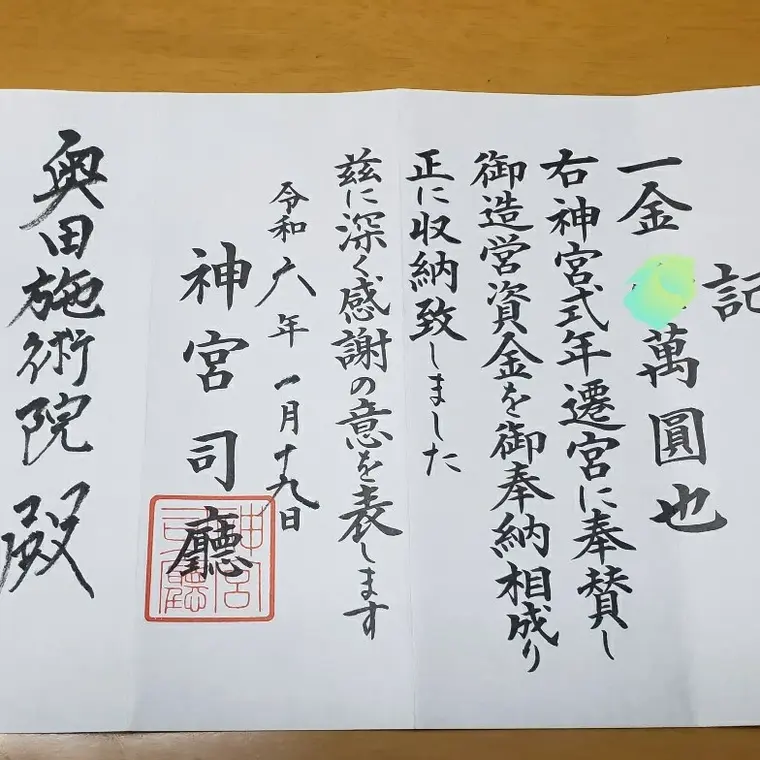 記
一金 萬圓也
右神宮式年遷宮に奉賛し
御造営資金を御奉納相成り
正に収納致しました
茲に深く感謝の意を表します
令和六年一月十九日
神宮司廳
神宮司廳
奥田施術院殿